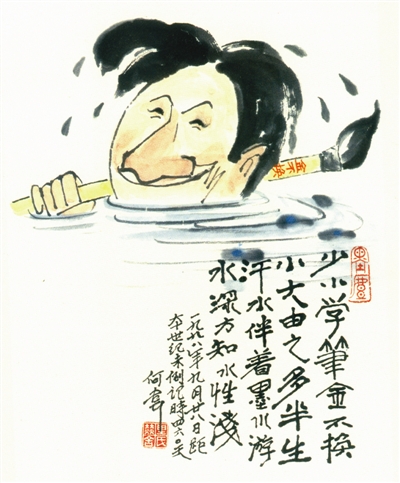 金不换
少小学筆金不换
小大由之多半生
汗水伴着墨水游
水深方知水性浅
一九九八年九月廿八日距
本世纪末倒记时四六〇天
何韦